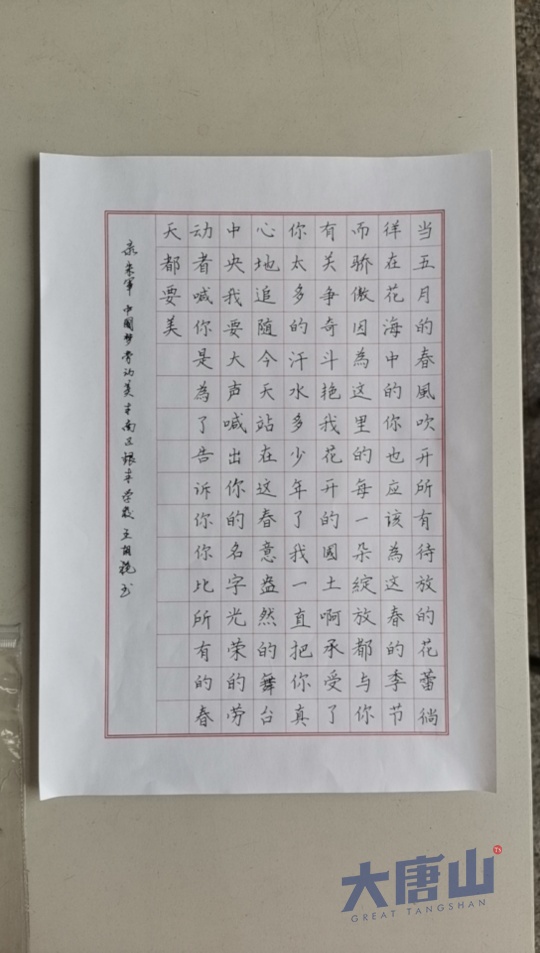 当五月的春風吹开所有待放的花蕾徜
徉在花海中的你也应该為这春的季节
而骄傲因為这里的每一朵綻放都与你
有关争奇斗艳我花开的國土啊承受了
你太多的汗水多少年了我一直把你真
心地追随今天站在这春意盎然的舞台
中央我要大声喊出你的名字光荣的劳
动者喊你是為了告诉你你比所有的春
天都要美
中國梦劳动美 丰南区银丰学校 书
大唐山
GREAT TANGSHAN